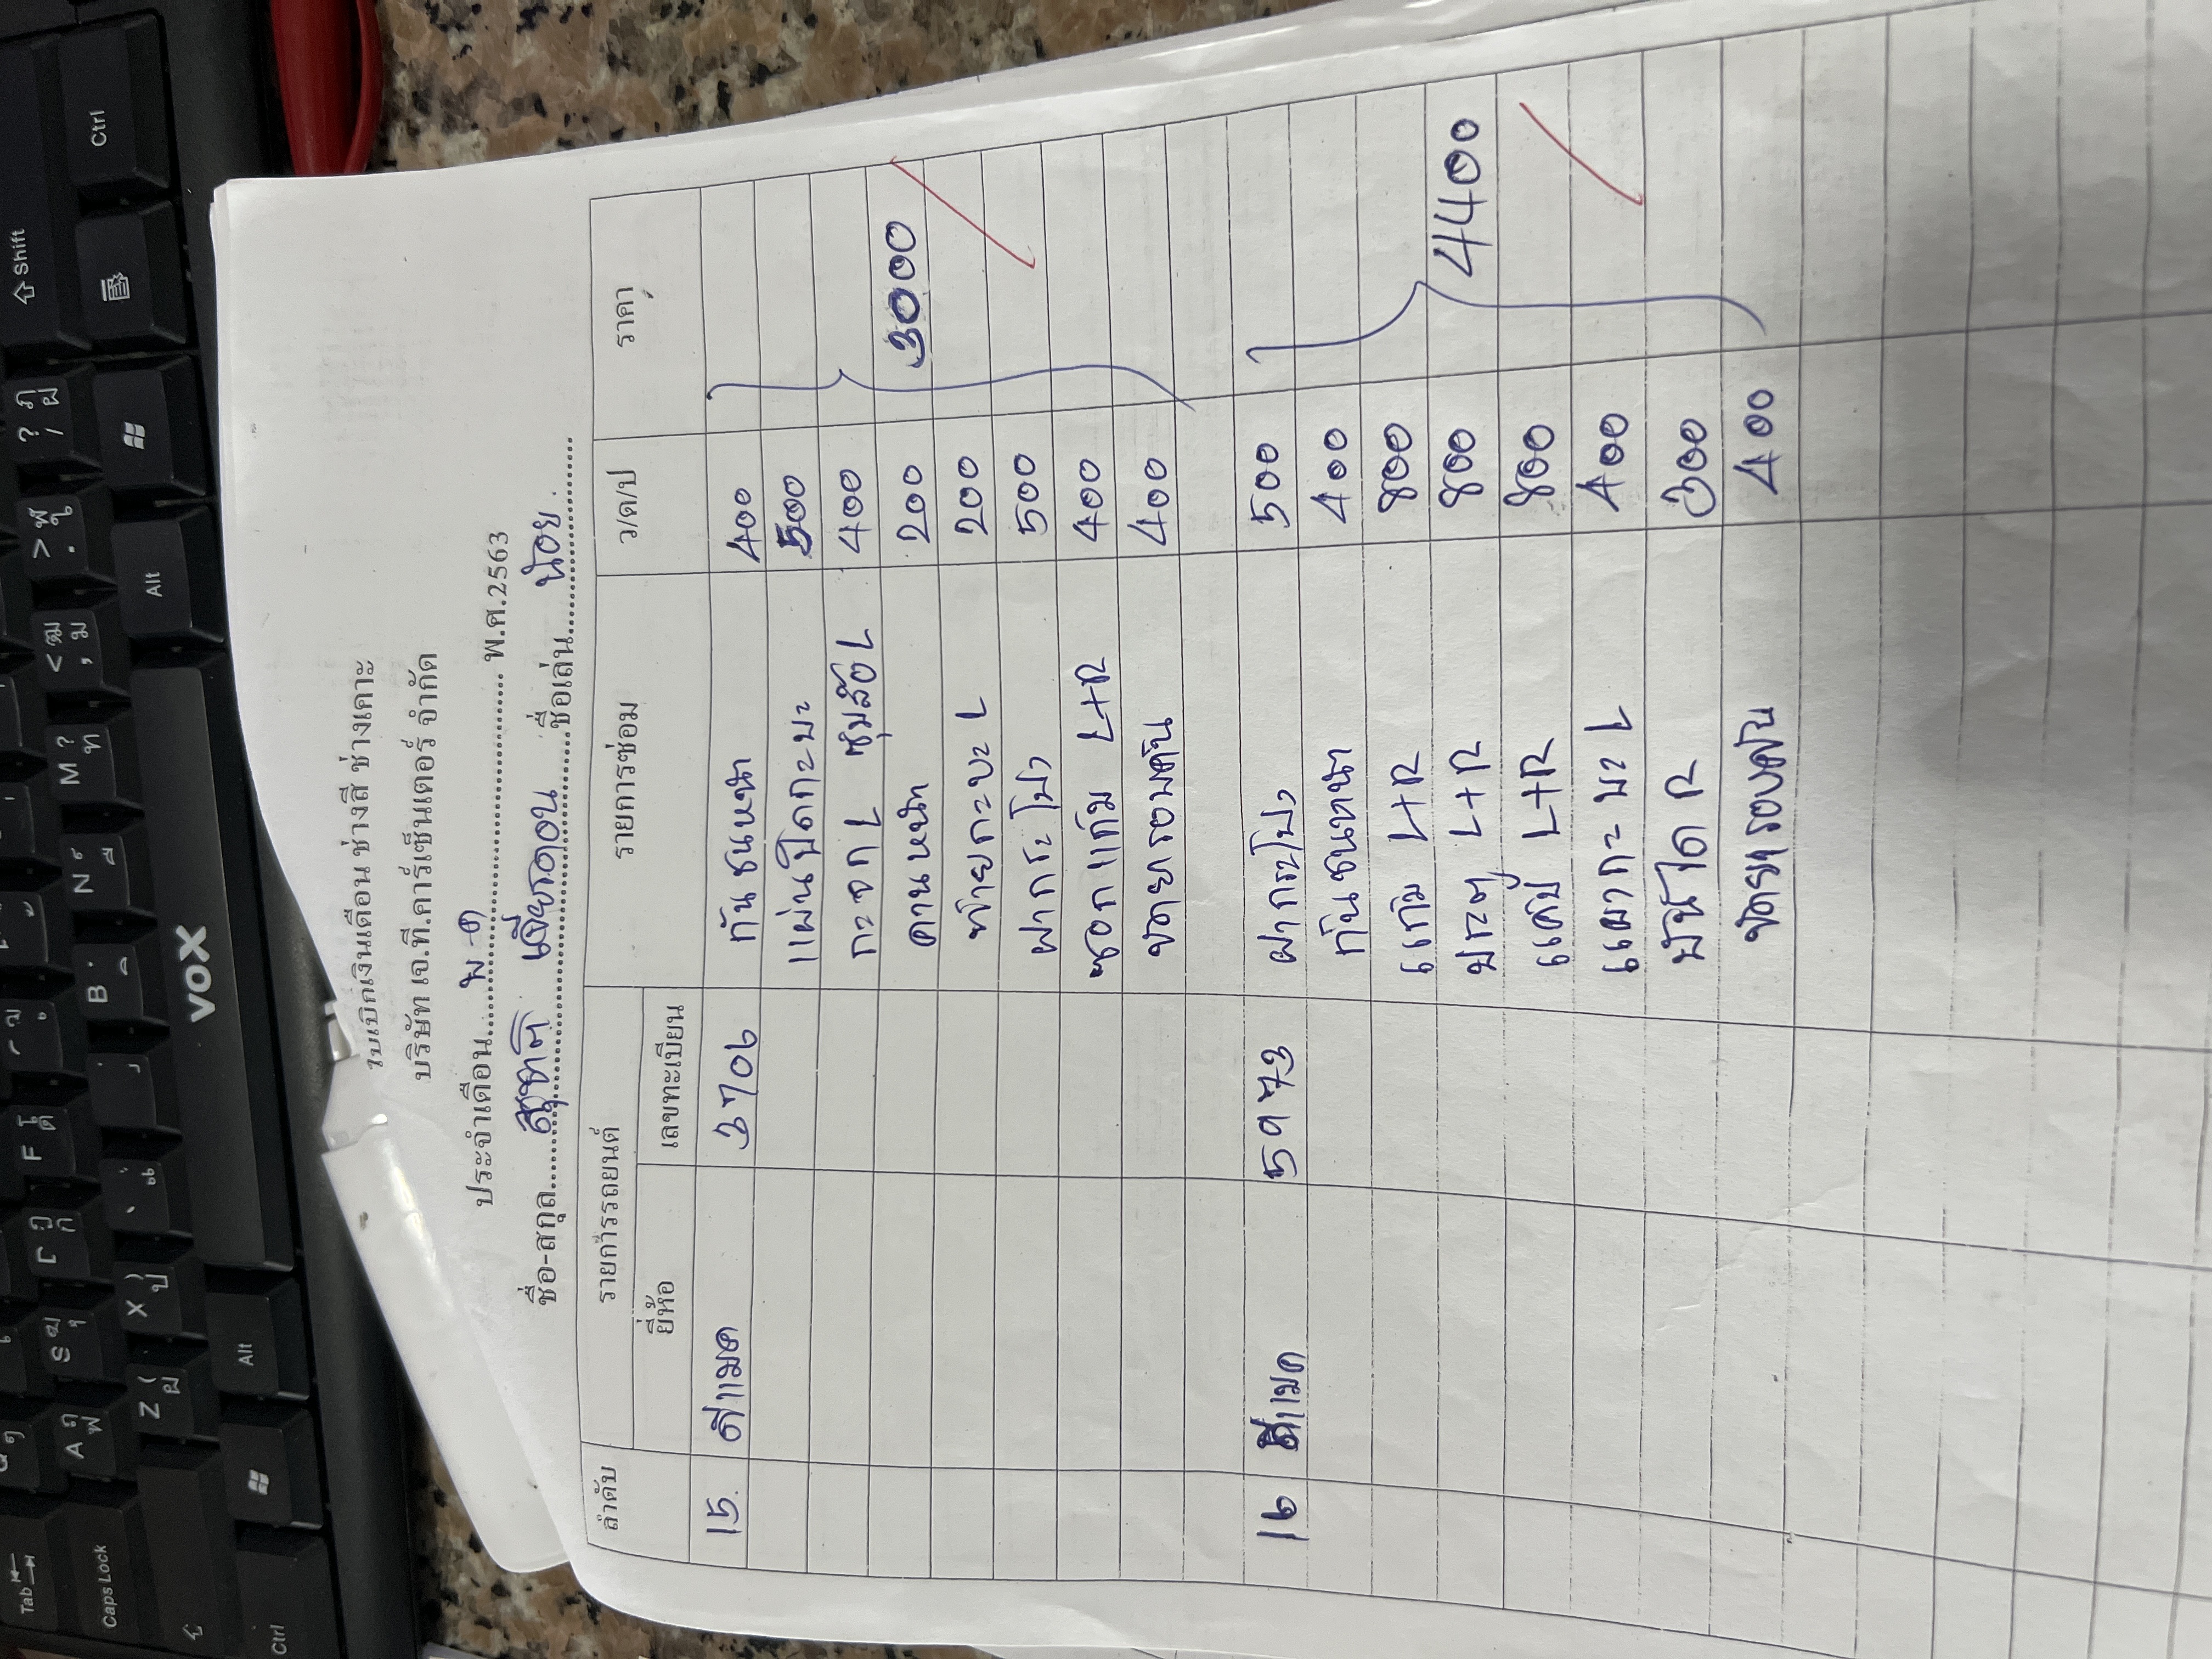 ใบเบิกเงินเดือน ช่างสี ช่างเคาะ
บริษัท เจ.ที.คาร์เซ็นเตอร์ จำกัด
ประจำเดือน......พ.ค............................ พ.ศ.2563
ชื่อ-สกุล.................ชื่อเล่น......น้อย............
ลำดับ รายการรถยนต์ รายการซ่อม ว/ด/ป ราคา
ยี่ห้อ เลขทะเบียน
15. ดีแมค 3706 กันชนหน้า 400
แผ่นปิดกะบะ 500
กะจก L ซุมล้อ L 400
คานหน้า 200 3000
ท้ายกะบะ L 200
ฝากระโปง 500
ซอกแก้ม L+R 400
ขายรองคัน 400
16 ดีแมค 5973 ฝากระโปง 500
กันชนหน้า 400
แก้ม L+R 800
ประตู L+R 800 4400
แค๊ป L+R 800
แผากะบะ L 400
บันได R 300
400
Shift
Ctrl
Alt
VOX
Tab
Caps Lock
Ctrl
Alt
Z
X
B
N
M
A
F